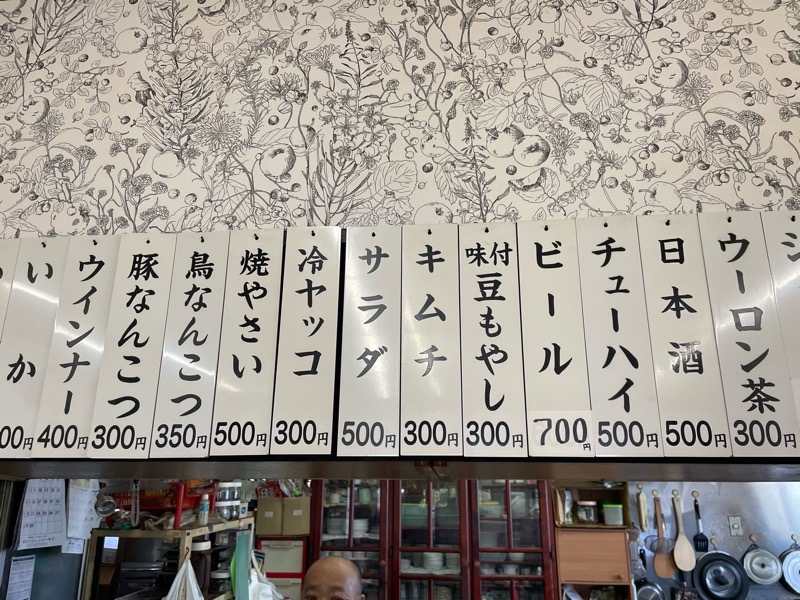 いか
00円
ウインナー
400円
豚なんこつ
300円
鳥なんこつ
350円
焼やさい
500円
冷ヤッコ
300円
サラダ
500円
キムチ
300円
味付
豆もやし
300円
ビール
700円
チューハイ
500円
日本酒
500円
ウーロン茶
300円